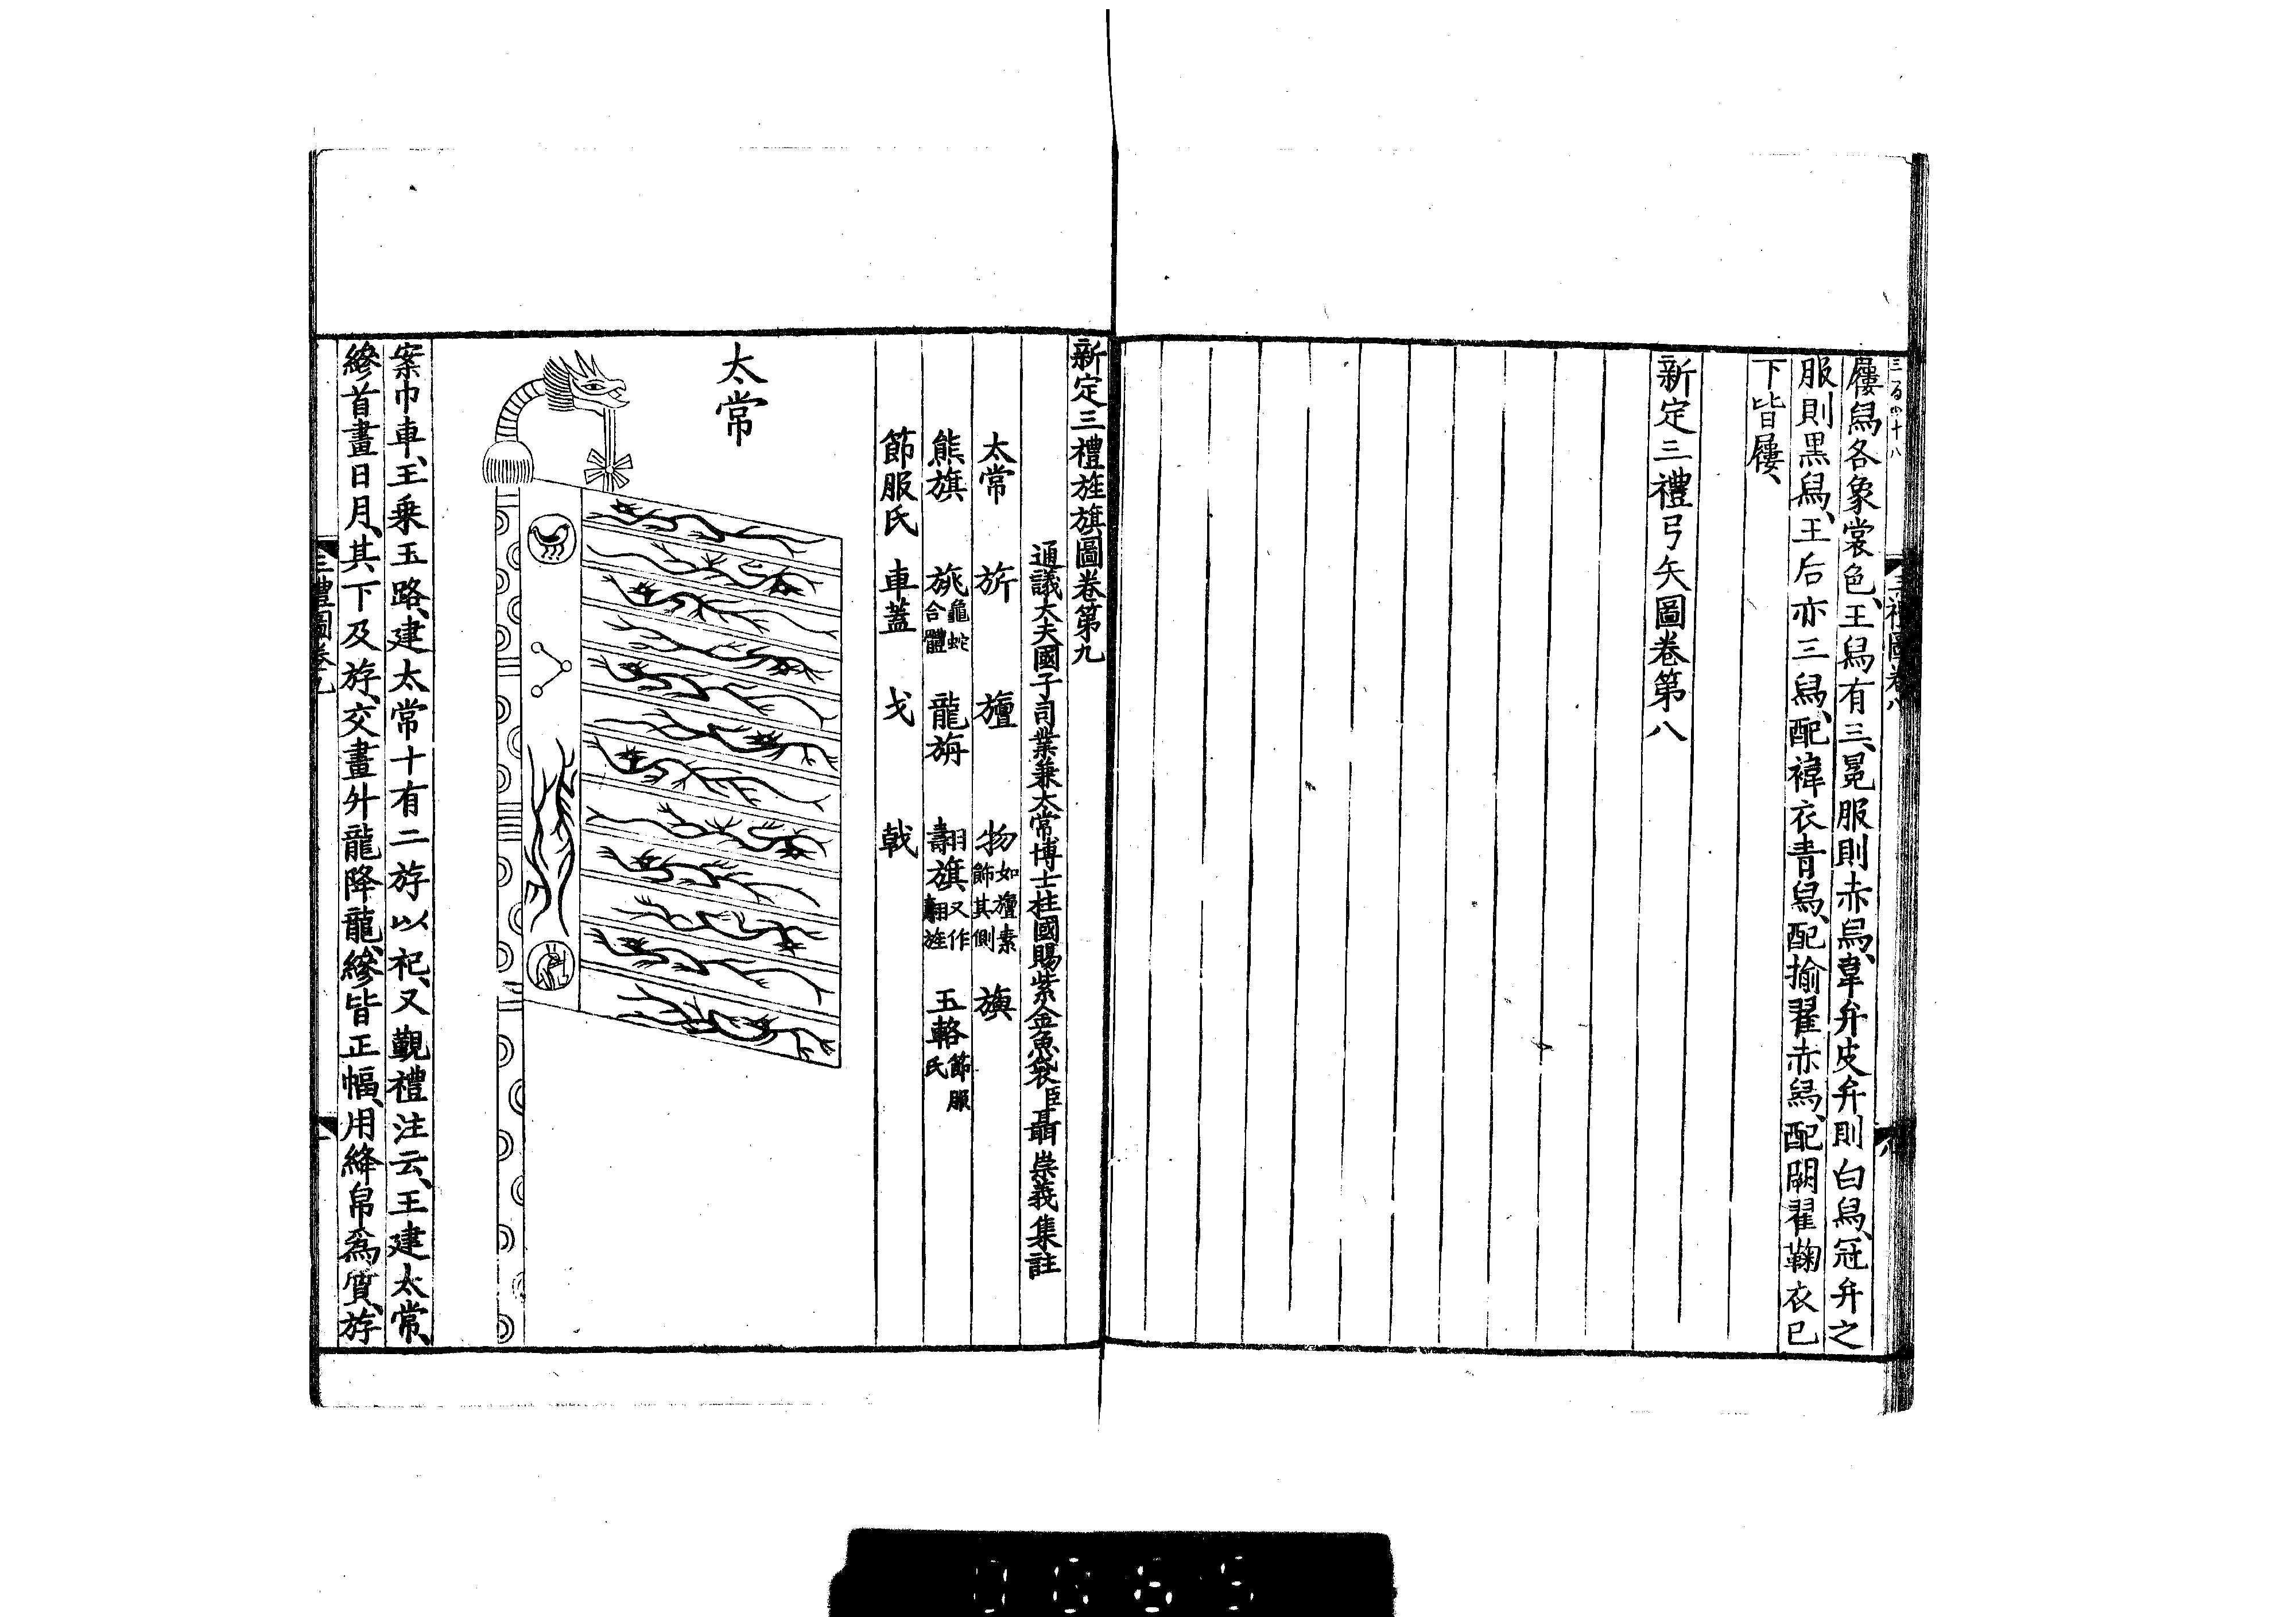 屨舄各象裳色、王舄有三、冕服則赤舄、韋弁皮弁則白舄、冠弁之
服則黒舄、王后亦三舄、配褘衣青舄、配揄翟赤舄、配闕翟鞠衣已
下皆屨、
新定三禮弓矢圖卷第八
新定三禮旌旗圖卷第九
通議大夫國子司業兼太常博士柱國賜紫金魚袋臣聶崇義集註
太常 旂 旜 物如旜素飾其側 旟
熊旗 旐龜蛇合體 龍旃 翿旗又作翿旌 玉輅節服氏
節服氏 車蓋 戈 戟
太常
案巾車、王乗玉路、建太常十有二斿以祀、又覲禮注云、王建太常、
縿首畫日月、其下及斿、交畫升龍降龍、縿皆正幅、用絳帛爲質、斿
三禮圖卷九